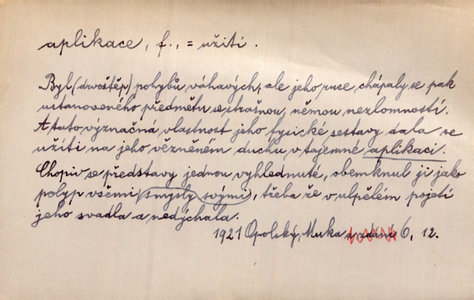 aplikace, f., = užití.
Byl (dvoštěp) pohybů váhavých, ale jeho ruce chápaly se pak
ustanoveného předmětu se strašnou, němou nezlomností.
A tato význačná vlastnost jeho fysické sestavy dala se
užíti na jeho vězněném duchu v tajemné aplikaci.
Chopiv se představy jednou vyhlédnuté, obemknul ji jako
polyp všemi smysly svými, třeba že v ulpělém pojetí
jeho svadla a nedýchala.
1921 Opolský, Muka 6, 12.